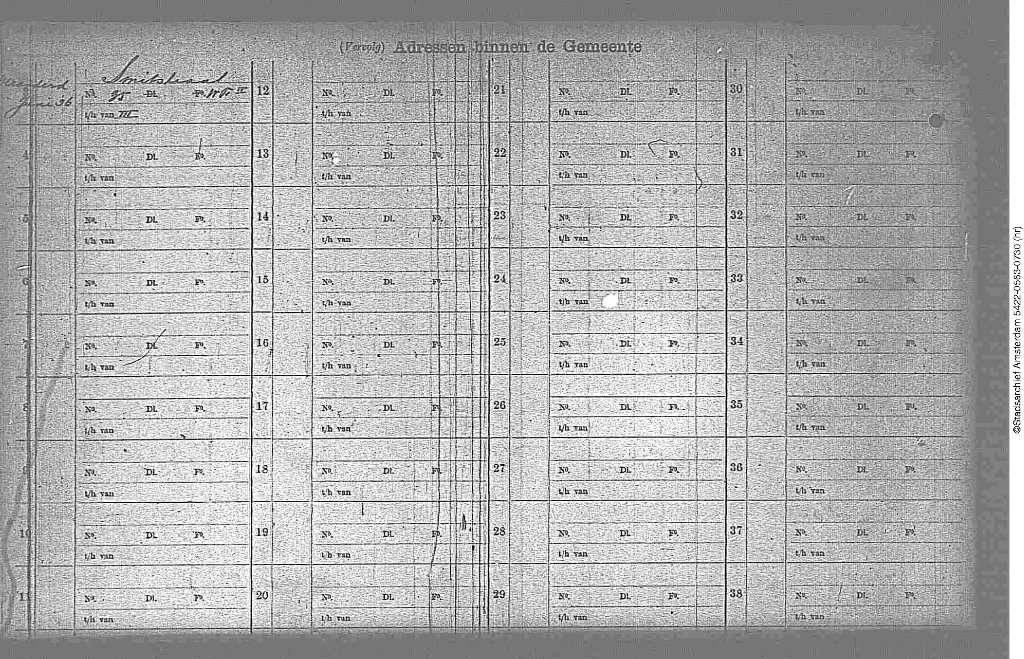 (Vervolg) Adressen binnen de Gemeente
Smitstraat
No. 95 Dl. Fo.
Juni 36
t/h van III
12
No. Dl. Fo.
t/h van
21
No. Dl. Fo.
t/h van
30
No. Dl. Fo.
t/h van
4
No. Dl. Fo.
t/h van
13
No. Dl. Fo.
t/h van
22
No. Dl. Fo.
t/h van
31
No. Dl. Fo.
t/h van
5
No. Dl. Fo.
t/h van
14
No. Dl. Fo.
t/h van
23
No. Dl. Fo.
t/h van
32
No. Dl. Fo.
t/h van
6
No. Dl. Fo.
t/h van
15
No. Dl. Fo.
t/h van
24
No. Dl. Fo.
t/h van
33
No. Dl. Fo.
t/h van
7
No. Dl. Fo.
t/h van
16
No. Dl. Fo.
t/h van
25
No. Dl. Fo.
t/h van
34
No. Dl. Fo.
t/h van
8
No. Dl. Fo.
t/h van
17
No. Dl. Fo.
t/h van
26
No. Dl. Fo.
t/h van
35
No. Dl. Fo.
t/h van
9
No. Dl. Fo.
t/h van
18
No. Dl. Fo.
t/h van
27
No. Dl. Fo.
t/h van
36
No. Dl. Fo.
t/h van
10
No. Dl. Fo.
t/h van
19
No. Dl. Fo.
t/h van
28
No. Dl. Fo.
t/h van
37
No. Dl. Fo.
t/h van
11
No. Dl. Fo.
t/h van
20
No. Dl. Fo.
t/h van
29
No. Dl. Fo.
t/h van
38
No. Dl. Fo.
t/h van
©Stadsarchief Amsterdam 5422-0563-0730 (hr)